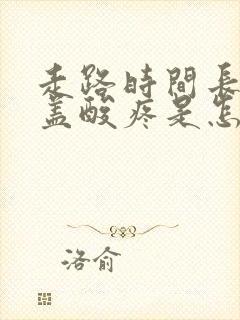 走路時間長
蓋酸疼是怎
洛俞